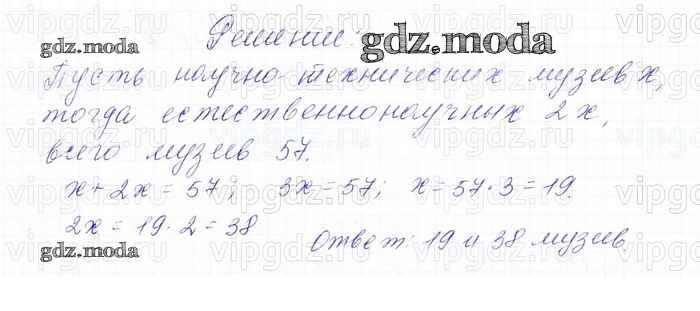 Решение:
gdz.moda
gdz.moda
Пусть научно-технических музеев x,
тогда естественнонаучных 2x,
всего музеев 57.
x+2x=57; 3x=57; x=57·3=19.
2x=19·2=38
gdz.moda
Ответ: 19 и 38 музеев
gdz.moda
vipgdz.ru